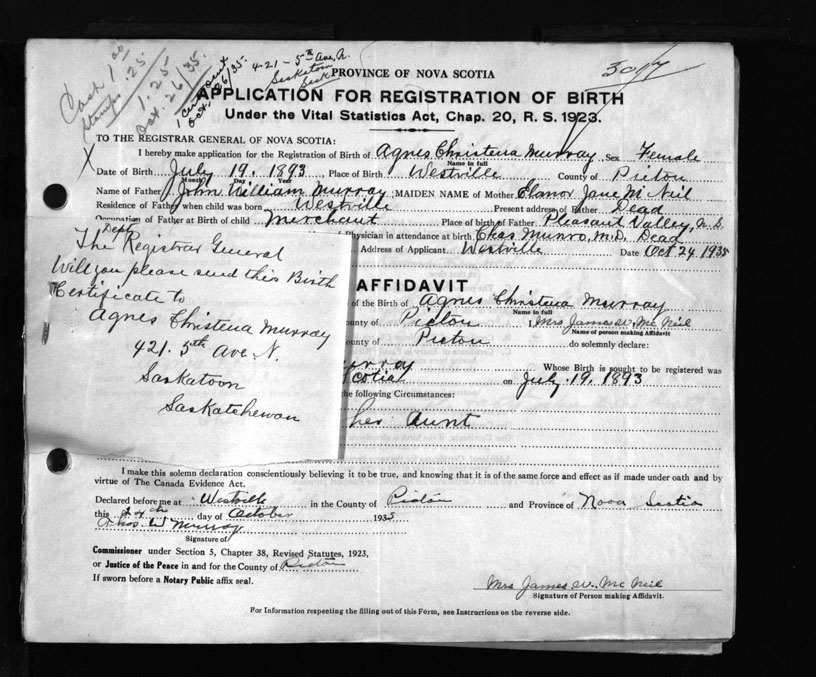 Cash 1.00
Stamps .25
1.25
Oct. 26/35.
Oct. 26/35.
421 - 5th Ave, N.
Saskatoon
Sask
3017
PROVINCE OF NOVA SCOTIA
APPLICATION FOR REGISTRATION OF BIRTH
Under the Vital Statistics Act, Chap. 20, R. S. 1923.
TO THE REGISTRAR GENERAL OF NOVA SCOTIA:
X I hereby make application for the Registration of Birth of Agnes Christena Murray Sex Female
Name in full
Date of Birth July 19, 1893 Place of Birth Westville County of Pictou
Month Day Year
Name of Father John William Murray MAIDEN NAME of Mother Elanor Jane McNeil
Residence of Father when child was born Westville Present address of Father Dead
Occupation of Father at Birth of child Merchant Place of birth of Father Pleasant Valley, N.S.
Physician in attendance at birth Chas Munro, M.D, Dead
Address of Applicant Westville Date Oct 24 1935
The Dept Registrar General
Will you please send this Birth
Certificate to
Agnes Christena Murray
421. 5th Ave. N.
Saskatoon
Saskatchewan
AFFIDAVIT
of the Birth of Agnes Christena Murray
Name in full
county of Pictou I, Mrs James W. McNeil
Name of person making Affidavit
county of Pictou do solemnly declare:
Murray Whose Birth is sought to be registered was
Scotia on July. 19. 1893
the following Circumstances:
her Aunt
I make this solemn declaration conscientiously believing it to be true, and knowing that it is of the same force and effect as if made under oath and by
virtue of The Canada Evidence Act.
Declared before me at Westville in the County of Pictou and Province of Nova Scotia
this 24th day of October 1935
Chas. W Murray
Signature of
Commissioner under Section 5, Chapter 38, Revised Statutes, 1923,
or Justice of the Peace in and for the County of Pictou
If sworn before a Notary Public affix seal.
Mrs James W. McNeil
Signature of Person making Affidavit.
For Information respecting the filling out of this Form, see Instructions on the reverse side.